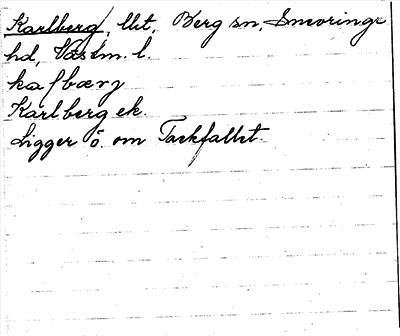 Karlberg, llt, Berg sn, Snevringe
hd, Västm. l.
kaſbærj
Karlberg ek.
Ligger ö. om Tackfallet.